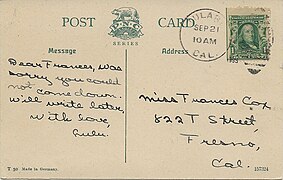 POST CARD
SERIES
Message
Address
SEP 21
10 AM
CAL.
Dear Frances, was
sorry you could
not come down.
Will write later,
With love,
Lulu.
Miss Frances Cox,
822 T Street,
Fresno,
Cal.
Made in Germany.
157324